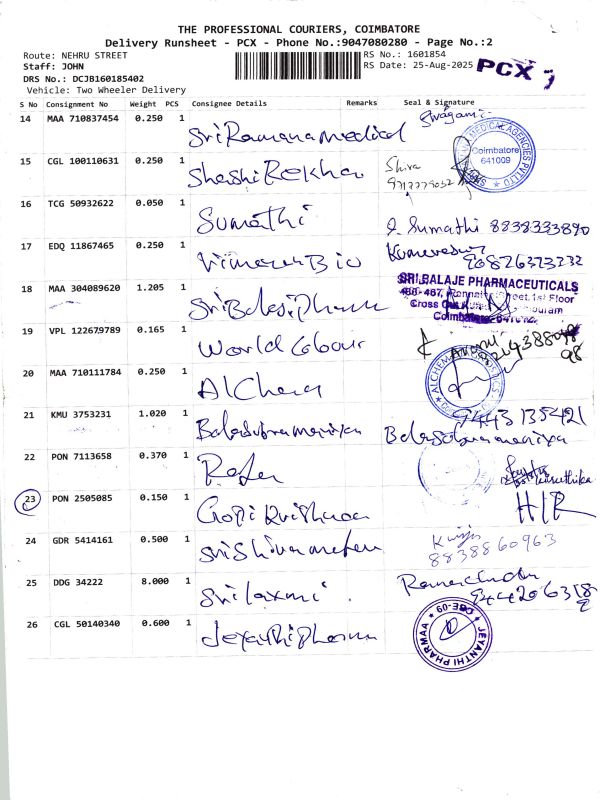 THE PROFESSIONAL COURIERS, COIMBATORE
Delivery Runsheet - PCX - Phone No.:9047080280 - Page No.:2
Route: NEHRU STREET
RS No.: 1601854
Staff: JOHN
RS Date: 25-Aug-2025
PCX
DRS No.: DCJB160185402
Vehicle: Two Wheeler Delivery
S No Consignment No Weight PCS Consignee Details Remarks Seal & Signature
14 MAA 710837454 0.250 1 Sri Ramana medical
MEDICAL AGENCIES PVT LTD
Coimbatore
641009
15 CGL 100110631 0.250 1 Shashi Rekha Shiva
16 TCG 50932622 0.050 1 Sumathi J. Sumathi 8838333890
17 EDQ 11867465 0.250 1
18 MAA 304089620 1.205 1 Sri Balaji Pharma
SRI BALAJE PHARMACEUTICALS
1st Floor
Cross Cut
19 VPL 122679789 0.165 1 World Colour
20 MAA 710111784 0.250 1 AlChem
21 KMU 3753231 1.020 1 Balasubramaniyan Balasubramaniyan
9443135421
22 PON 7113658 0.370 1
23 PON 2505085 0.150 1 Gopi Krishnaa
24 GDR 5414161 0.500 1
8838860963
25 DDG 34222 8.000 1 Sri laxmi Ramachandran
26 CGL 50140340 0.600 1 Jeyanthi Pharma
JEYANTHI PHARMAA CBE-09